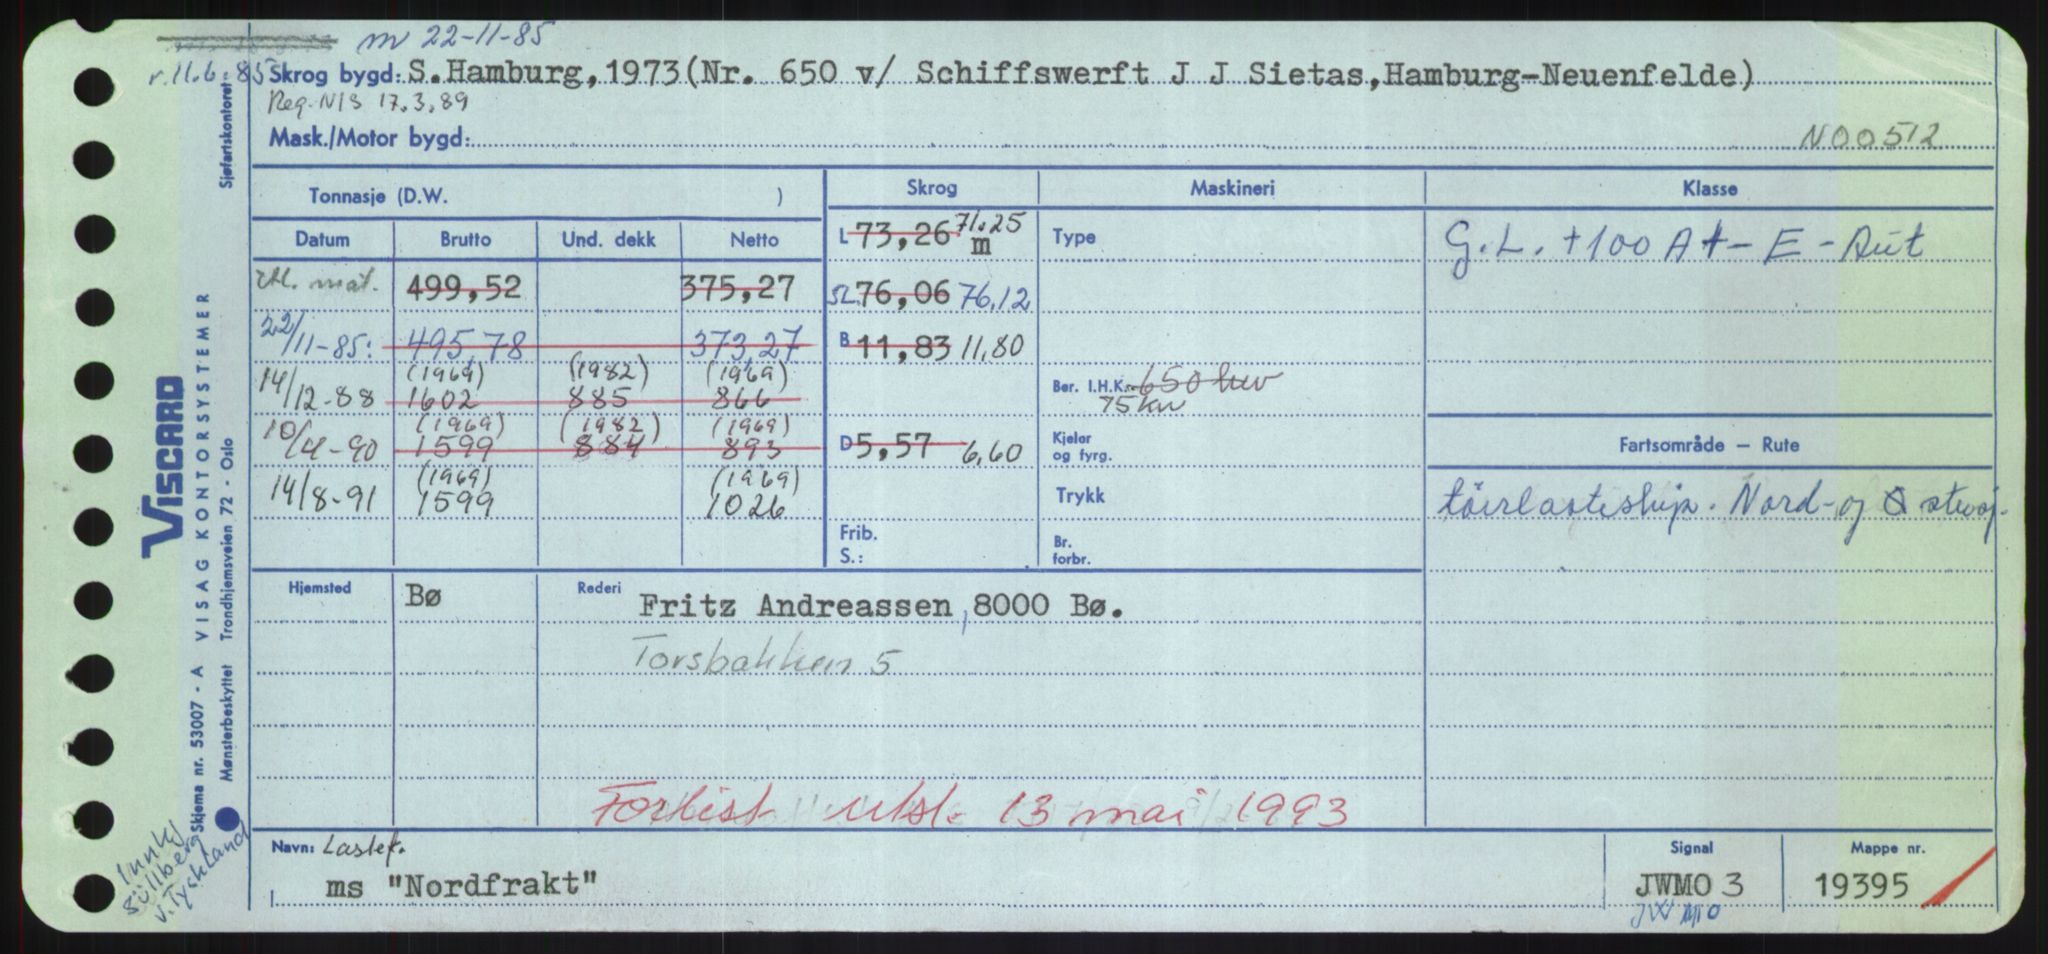 m 22-11-85
r.11.6.85 Skrog bygd: S.Hamburg, 1973(Nr. 650 v/ Schiffswerft J J Sietas,Hamburg-Neuenfelde)
Reg. NIS 17.3.89
Mask./Motor bygd: N00512
Tonnasje (D.W. ) Skrog Maskineri Klasse
Datum Brutto Und. dekk Netto
L 73,26 71.25 m Type G.L. +100 A4 - E - Aut
utl. mål. 499,52 375,27 SL 76,06 76,12
22/11-85: 495,78 373,27 B 11,83 11,80
(1969) (1982) (1969)
14/12-88 1602 885 866 Ber. I.H.K. 650 kw
75 kw
(1969) (1982) (1969)
10/4-90 1599 884 893 D 5,57 6,60 Kjeler og fyrg. Fartsområde – Rute
(1969) (1969)
14/8-91 1599 1026 Trykk tørrlasteskip. Nord- og Østersj.
Frib. S.: Br. forbr.
Hjemsted Bø Rederi Fritz Andreassen, 8000 Bø.
Torsbakken 5
Forlist utsl. 13 mai 1993
Navn: Lastef. Signal Mappe nr.
ms "Nordfrakt" JWMO 3 19395
JWMO
Sjøfartskontoret
VISCARD
VISAG KONTORSYSTEMER
Trondhjemsveien 72 - Oslo
Skjema nr. 53007 - A
Mønsterbeskyttet
Innkj
Süllberg
v. Tyskland